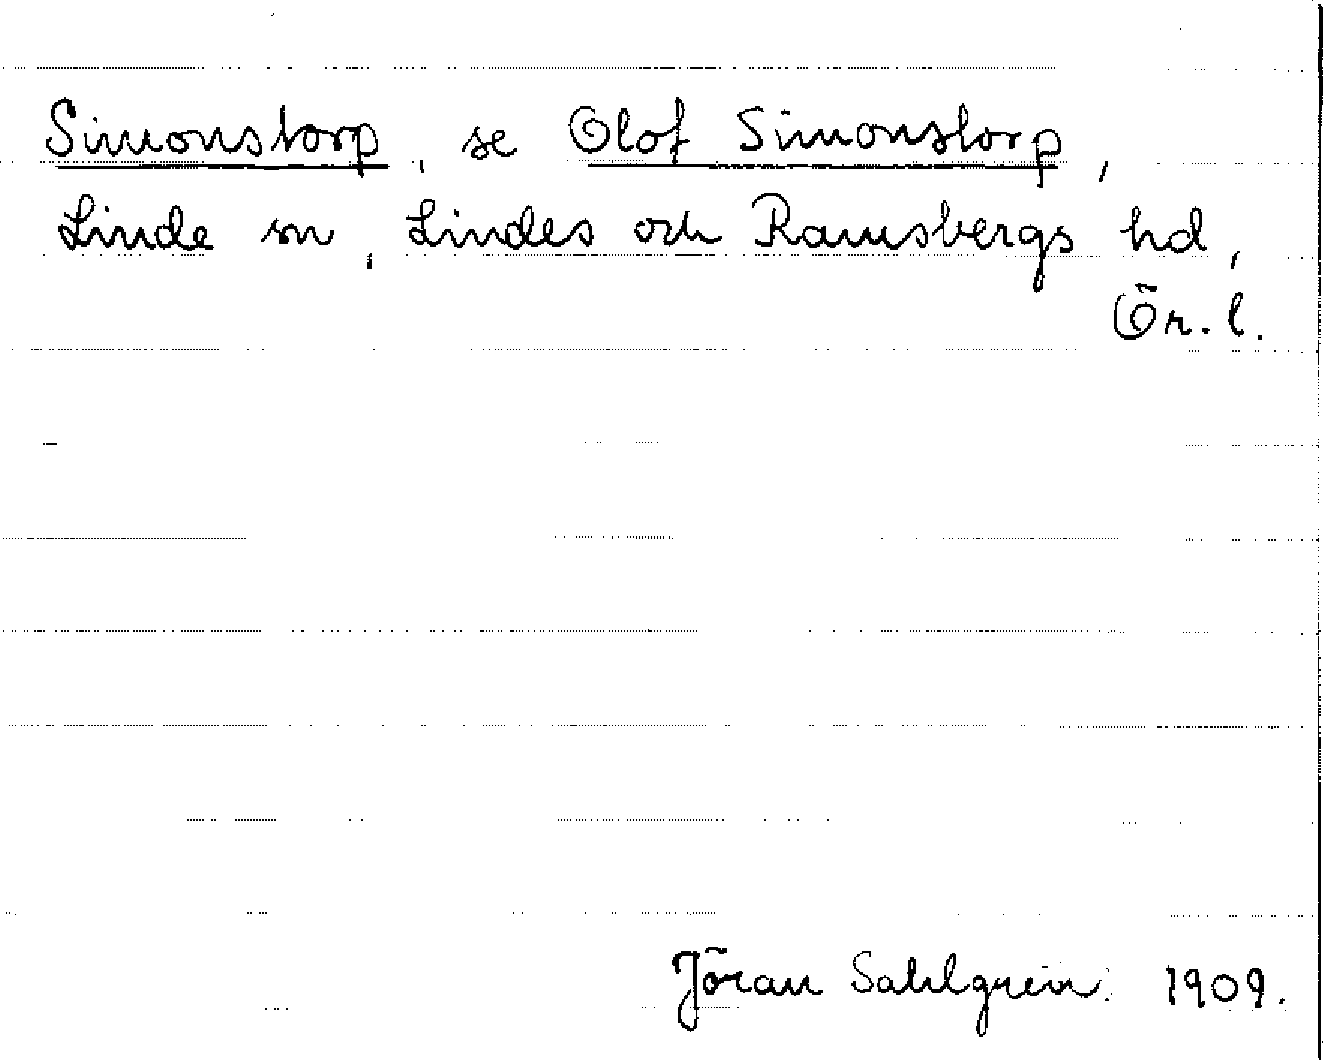 Simonstorp, se Olof Simonstorp,
Linde sn, Lindes och Ramsbergs hd,
Ör. l.
Jöran Sahlgren. 1909.